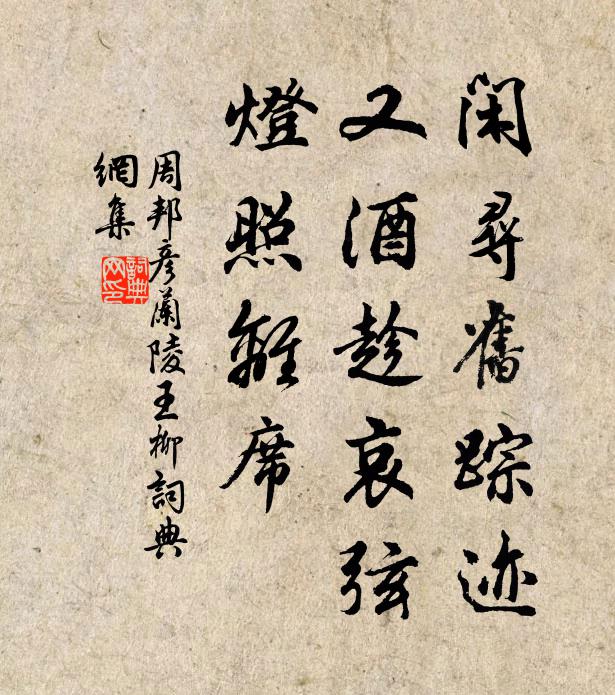 閑尋舊踪迹
又酒趁哀弦
燈照離席
周邦彥蘭陵王柳詞典
網集
詞典
网印